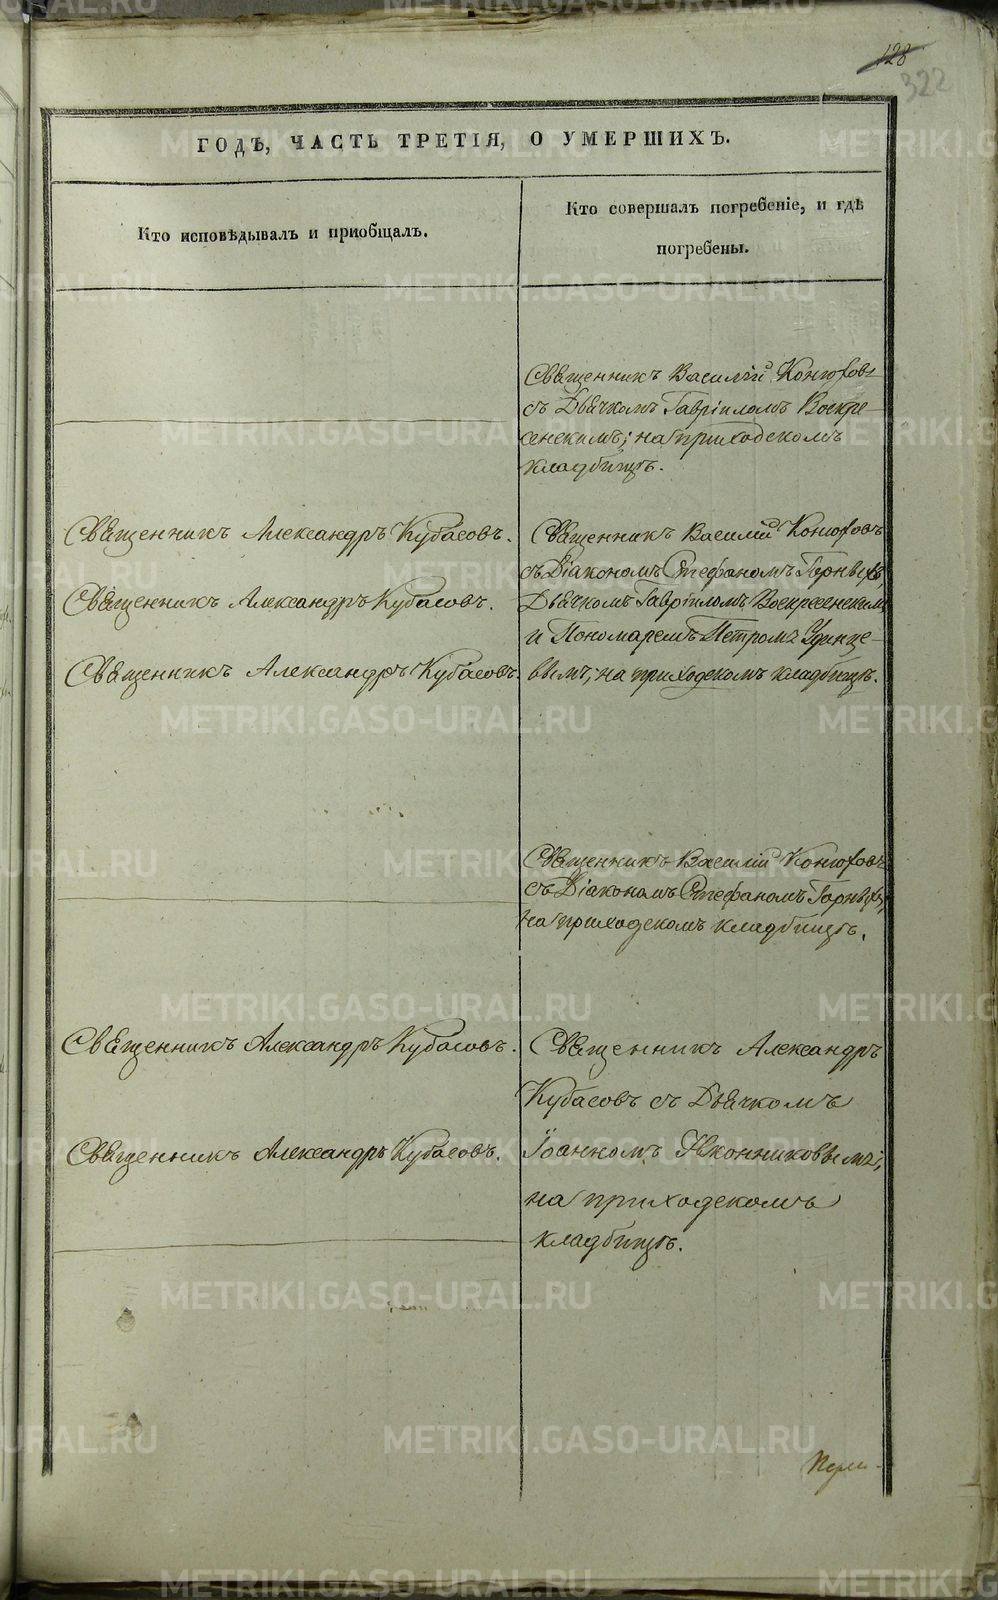 128
322
ГОДЪ, ЧАСТЬ ТРЕТІЯ, О УМЕРШИХЪ.
Кто исповѣдывалъ и пріобщалъ.
Кто совершалъ погребеніе, и гдѣ
погребены.
Священникъ Василій Конюховъ
съ Дьячкомъ Гавріиломъ Воскре-
сенскимъ; на приходскомъ
кладбищѣ.
Священникъ Александръ Кубасовъ.
Священникъ Александръ Кубасовъ.
Священникъ Александръ Кубасовъ.
Священникъ Василій Конюховъ
съ Діакономъ Стефаномъ Горныхъ
Дьячкомъ Гавріиломъ Воскресенскимъ
и Пономаремъ Петромъ Удинце-
вымъ; на приходскомъ кладбищѣ.
Священникъ Василій Конюховъ
съ Діакономъ Стефаномъ Горныхъ,
на приходскомъ кладбищѣ.
Священникъ Александръ Кубасовъ.
Священникъ Александръ Кубасовъ.
Священникъ Александръ
Кубасовъ съ Дьячкомъ
Іоанномъ Иконниковымъ;
на приходскомъ
кладбищѣ.
METRIKI.GASO-URAL.RU